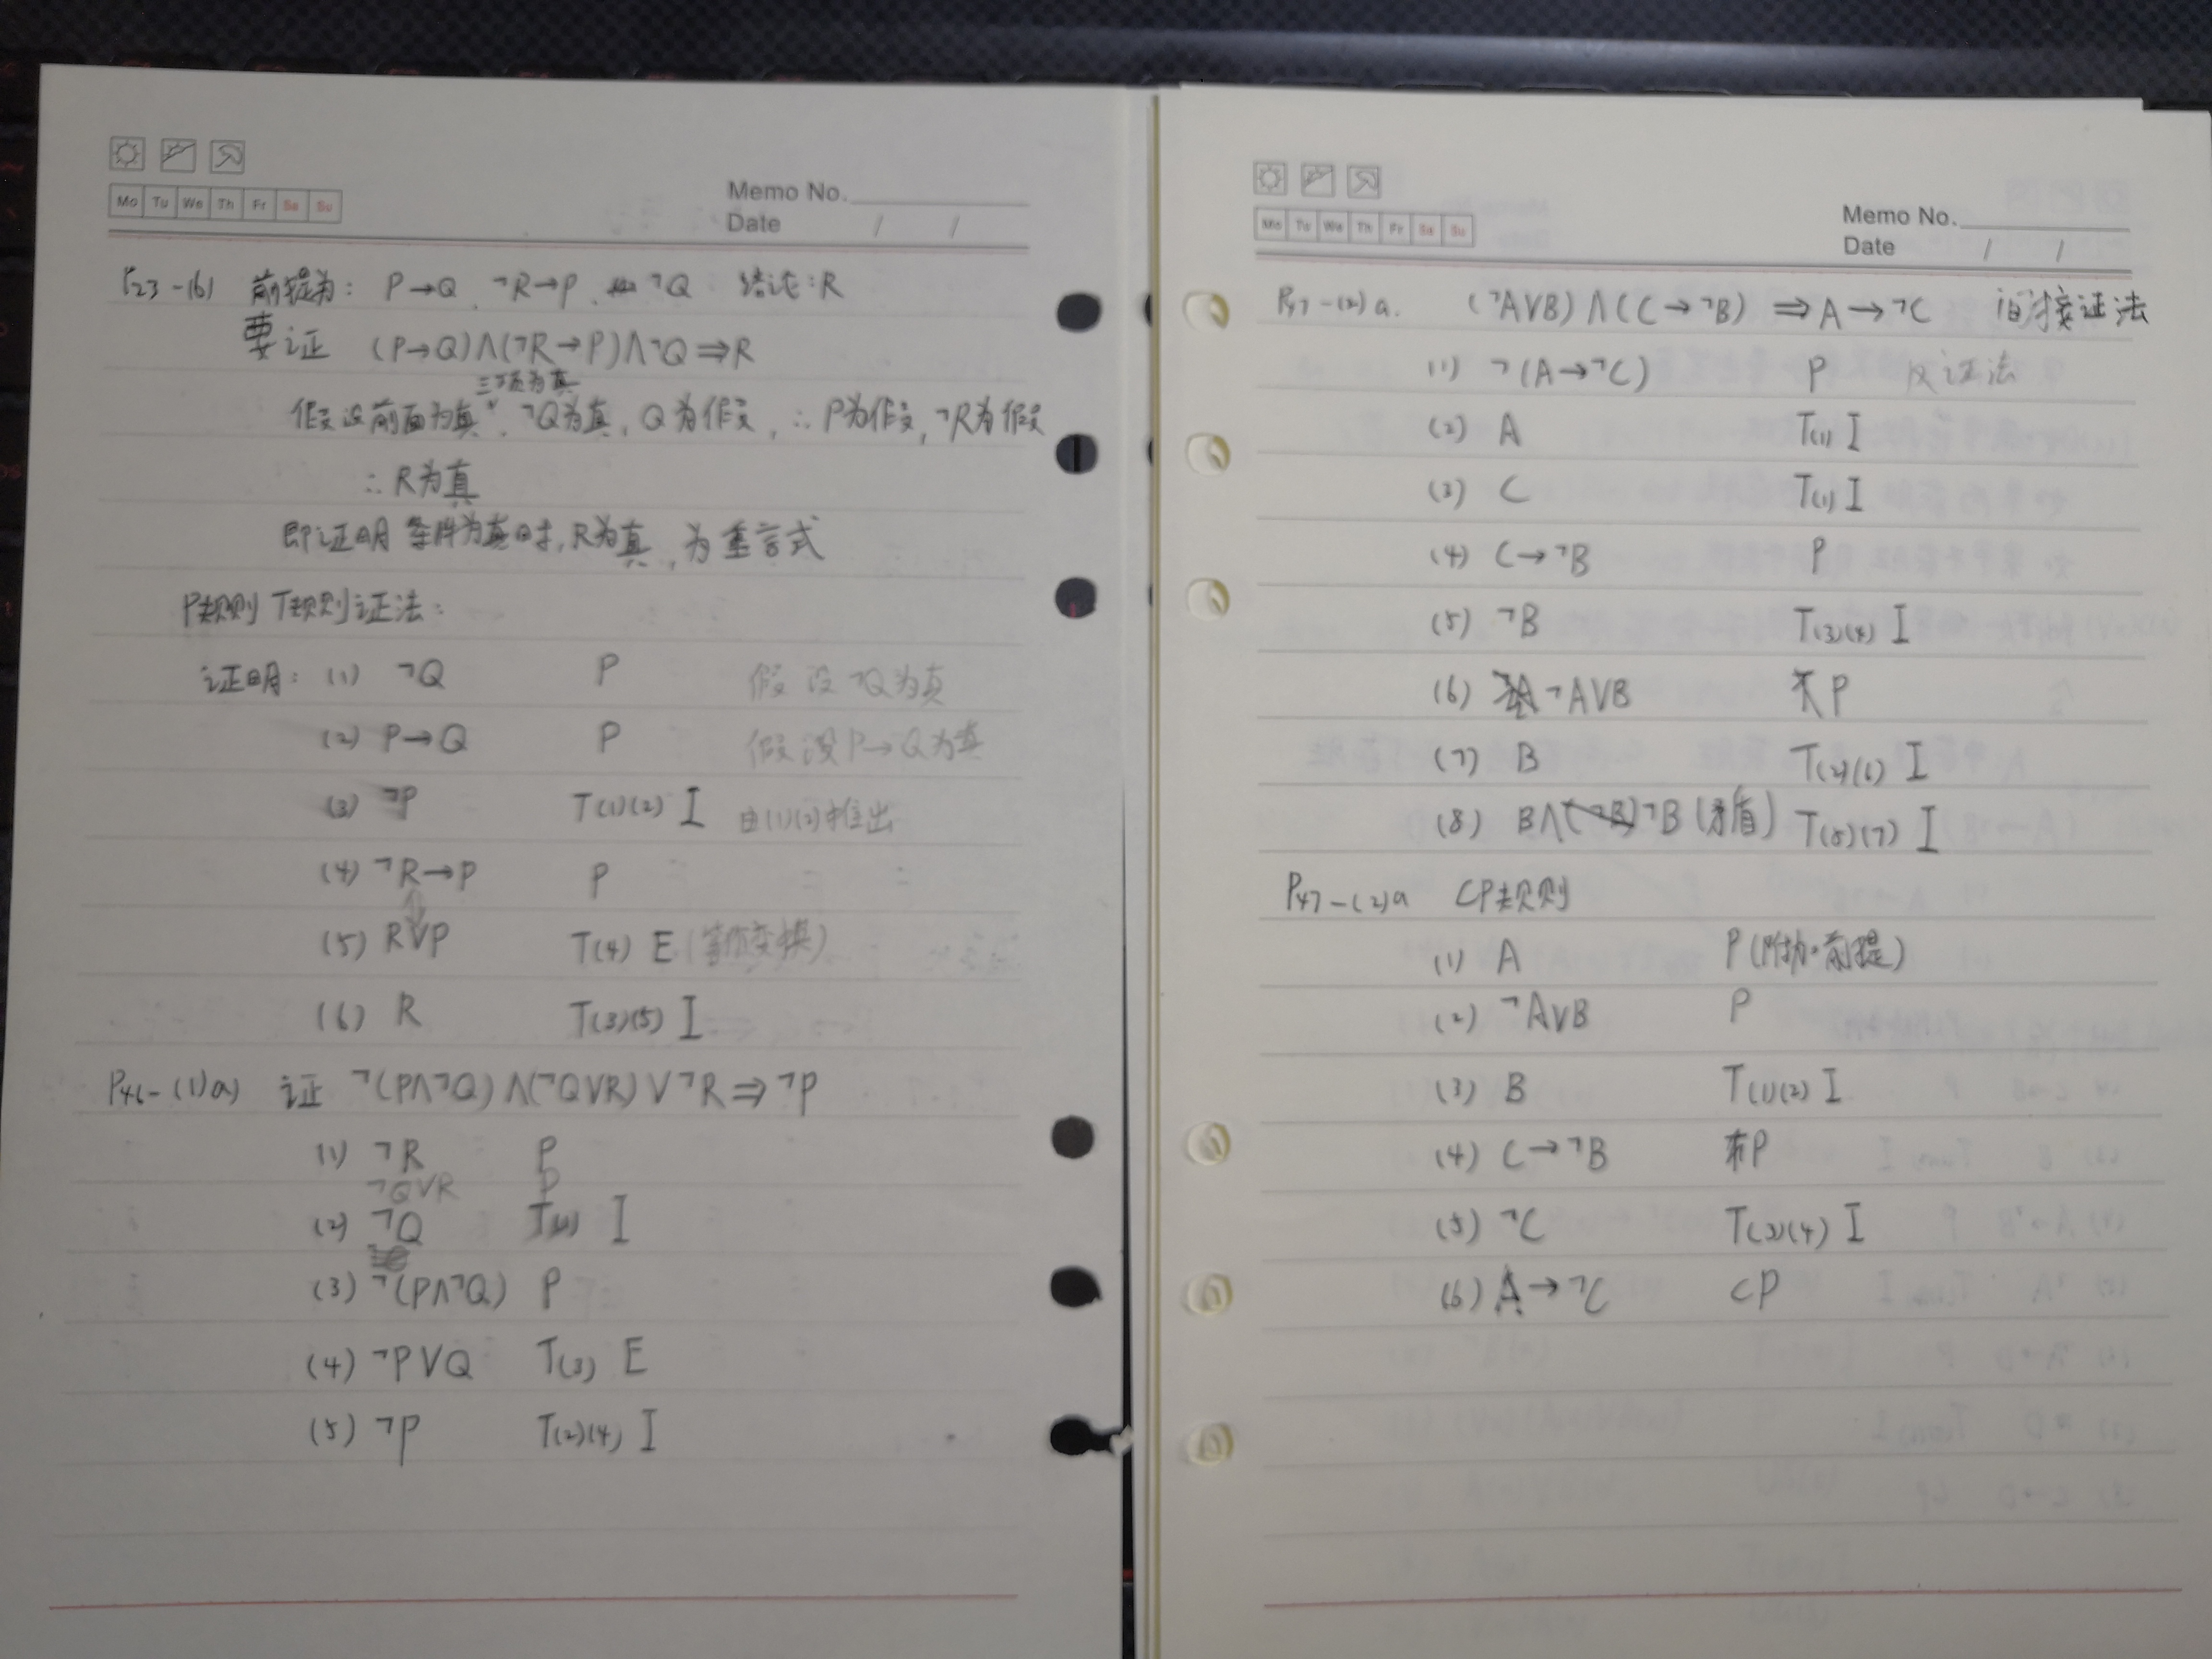 Mo Tu We Th Fr Sa Su
Memo No.
Date / /
P23-(6) 前提为: P→Q、¬R→P、¬Q 结论:R
要证 (P→Q)∧(¬R→P)∧¬Q⇒R
三项为真
假设前面为真、¬Q为真,Q为假,∴P为假,¬R为假
∴R为真
即证明条件为真时,R为真,为重言式
P规则 T规则证法:
证明: (1) ¬Q P 假设¬Q为真
(2) P→Q P 假设P→Q为真
(3) ¬P T(1)(2) I 由(1)(2)推出
(4) ¬R→P P
(5) R∨P T(4) E (等价变换)
(6) R T(3)(5) I
P46-(1)a) 证 ¬(P∧¬Q)∧(¬Q∨R)∨¬R⇒¬P
(1) ¬R P
¬Q∨R P
(2) ¬Q I
(3) ¬(P∧¬Q) P
(4) ¬P∨Q T(3) E
(5) ¬P T(2)(4) I
Mo Tu We Th Fr Sa Su
Memo No.
Date / /
P47-(2)a. (¬A∨B)∧(C→¬B)⇒A→¬C 间接证法
(1) ¬(A→¬C) P 反证法
(2) A T(1) I
(3) C T(1) I
(4) C→¬B P
(5) ¬B T(3)(4) I
(6) ¬A∨B P
(7) B T(2)(6) I
(8) B∧¬B (矛盾) T(5)(7) I
P47-(2)a CP规则
(1) A P(附加前提)
(2) ¬A∨B P
(3) B T(1)(2) I
(4) C→¬B P
(5) ¬C T(3)(4) I
(6) A→¬C CP